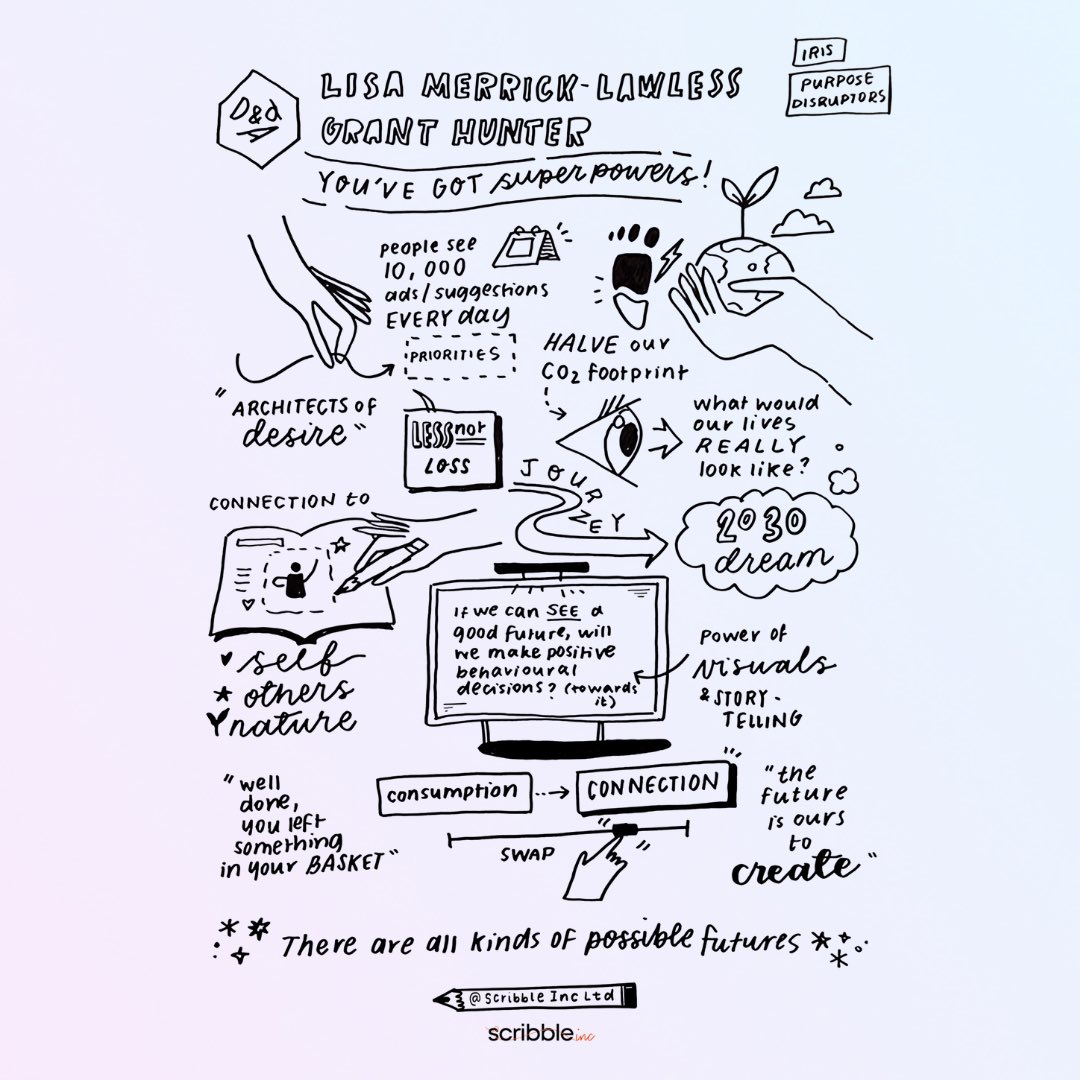 D&d
LISA MERRICK-LAWLESS
GRANT HUNTER
IRIS
PURPOSE
DISRUPTORS
YOU'VE GOT superpowers!
people see
10,000
ads/suggestions
EVERY day
PRIORITIES
"ARCHITECTS OF
desire"
HALVE our
CO2 footprint
LESS not
LOSS
what would
our lives
REALLY
look like?
JOURNEY
2030
dream
CONNECTION to
self
others
nature
If we can SEE a
good future, will
we make positive
behavioural
decisions? (towards
it)
Power of
visuals
& STORY-
TELLING
"well
done,
you left
something
in your BASKET"
consumption
CONNECTION
SWAP
"the
future
is ours
to
create"
There are all kinds of possible futures
@Scribble Inc Ltd
scribble inc